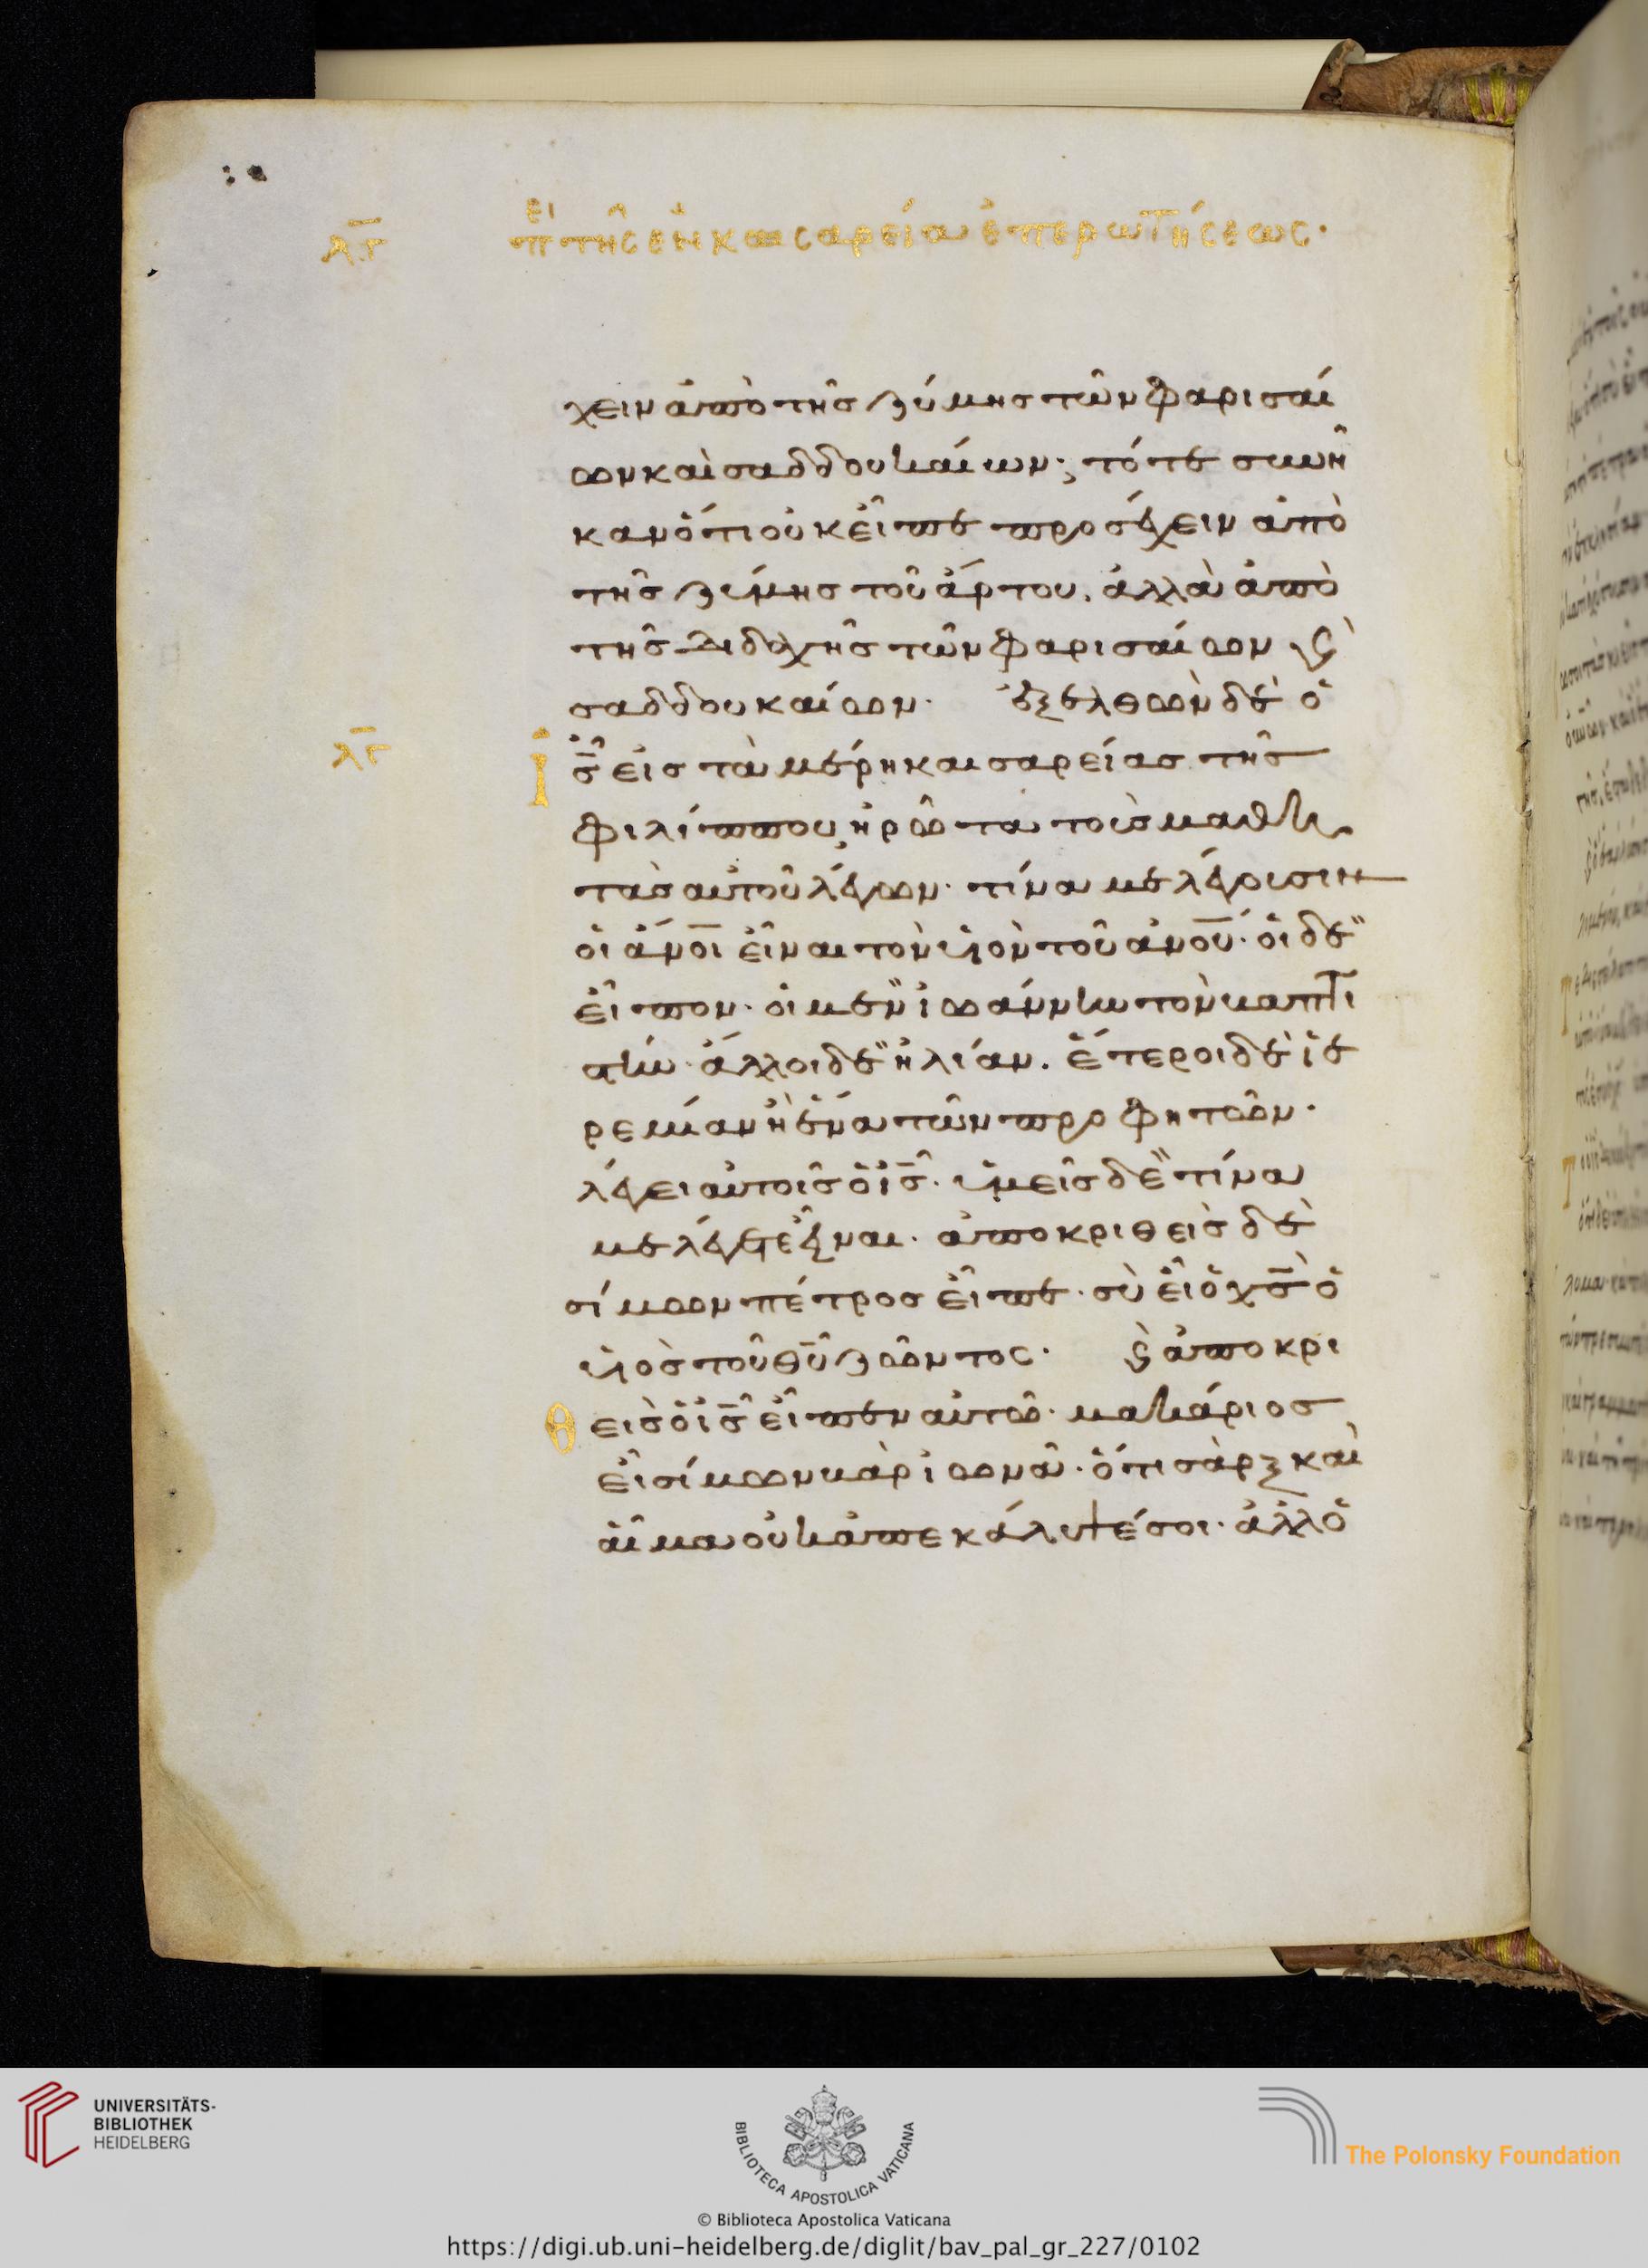 λγ
πει τῆς ἐν καισαρεία ἐπερωτήσεως·
χειν ἀπὸ τῆς ζύμης τῶν φαρισαί
ων καὶ σαδδουκαίων; τότε συνῆ
καν ὅτι οὐκ εἶπε προσέχειν ἀπὸ
τῆς ζύμης τοῦ ἄρτου, ἀλλὰ ἀπὸ
τῆς διδαχῆς τῶν φαρισαίων ϗ
σαδδουκαίων· ἐξελθὼν δὲ ὁ
λγ
ἰς εἰς τὰ μέρη καισαρείας τῆς
φιλίππου, ἠρῶτα τοὺς μαθη
τὰς αὐτοῦ λέγων· τίνα με λέγουσιν
οἱ ἄνοι εἶναι τὸν υἱὸν τοῦ ἀνου· οἱ δὲ
εἶπον· οἱ μὲν ἰωάννην τὸν βαπτι
στὴν· ἄλλοι δὲ ἠλίαν. ἕτεροι δὲ ἱε
ρεμίαν ἢ ἕνα τῶν προφητῶν·
λέγει αὐτοῖς ὁ ἰς· ὑμεῖς δὲ τίνα
με λέγετε εἶναι· ἀποκριθεὶς δὲ
σίμων πέτρος εἶπε· σὺ εἶ ὁ χς ὁ
υἱὸς τοῦ θυ ζῶντος· ϗ ἀποκρι
θεὶς ὁ ἰς εἶπεν αὐτῶ· μακάριος
εἶ σίμων βὰρ ἰωνᾶ· ὅτι σὰρξ καὶ
αἷμα οὐκ ἀπεκάλυψέ σοι· ἀλλ ὁ
UNIVERSITÄTS-
BIBLIOTHEK
HEIDELBERG
BIBLIOTECA APOSTOLICA VATICANA
The Polonsky Foundation
© Biblioteca Apostolica Vaticana
https://digi.ub.uni-heidelberg.de/diglit/bav_pal_gr_227/0102